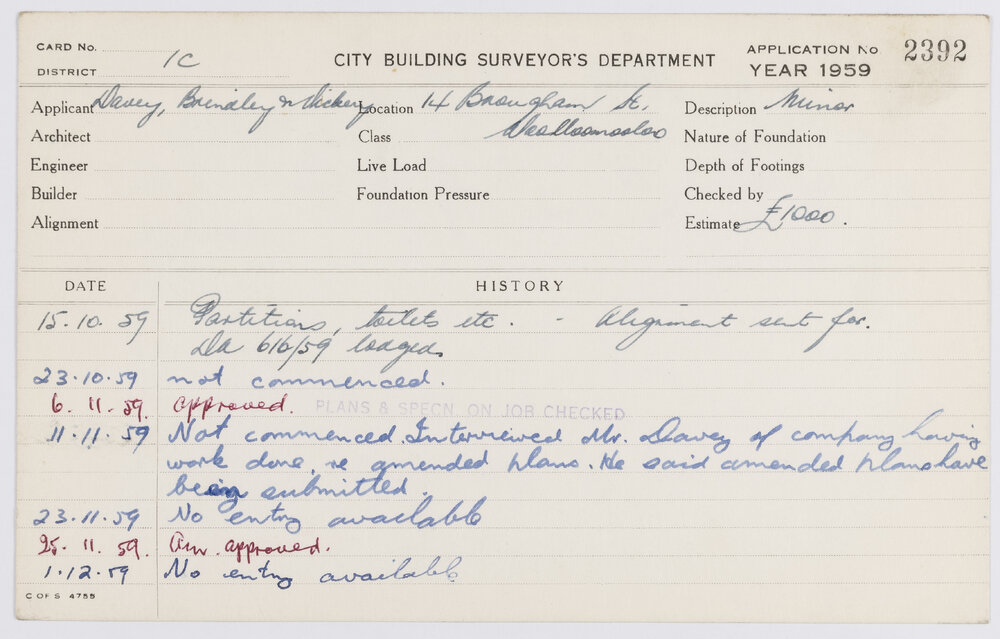 CARD No.
DISTRICT 1C
CITY BUILDING SURVEYOR'S DEPARTMENT
APPLICATION No 2392
YEAR 1959
Applicant Davey, Brindley & Vickery Location 14 Brougham St. Description Minor
Architect Class Woolloomooloo Nature of Foundation
Engineer Live Load Depth of Footings
Builder Foundation Pressure Checked by
Alignment Estimate £1000.
DATE HISTORY
15.10.59 Partitions, toilets etc. - Alignment sent for.
DA 616/59 lodged
23.10.59 not commenced.
6.11.59. approved. PLANS & SPECN ON JOB CHECKED
11.11.59 Not commenced. Interviewed Mr. Davey of company having
work done, re amended plans. He said amended plans have
being submitted.
23.11.59 No entry available
25.11.59. Am. approved.
1.12.59 No entry available
C OF S 4755